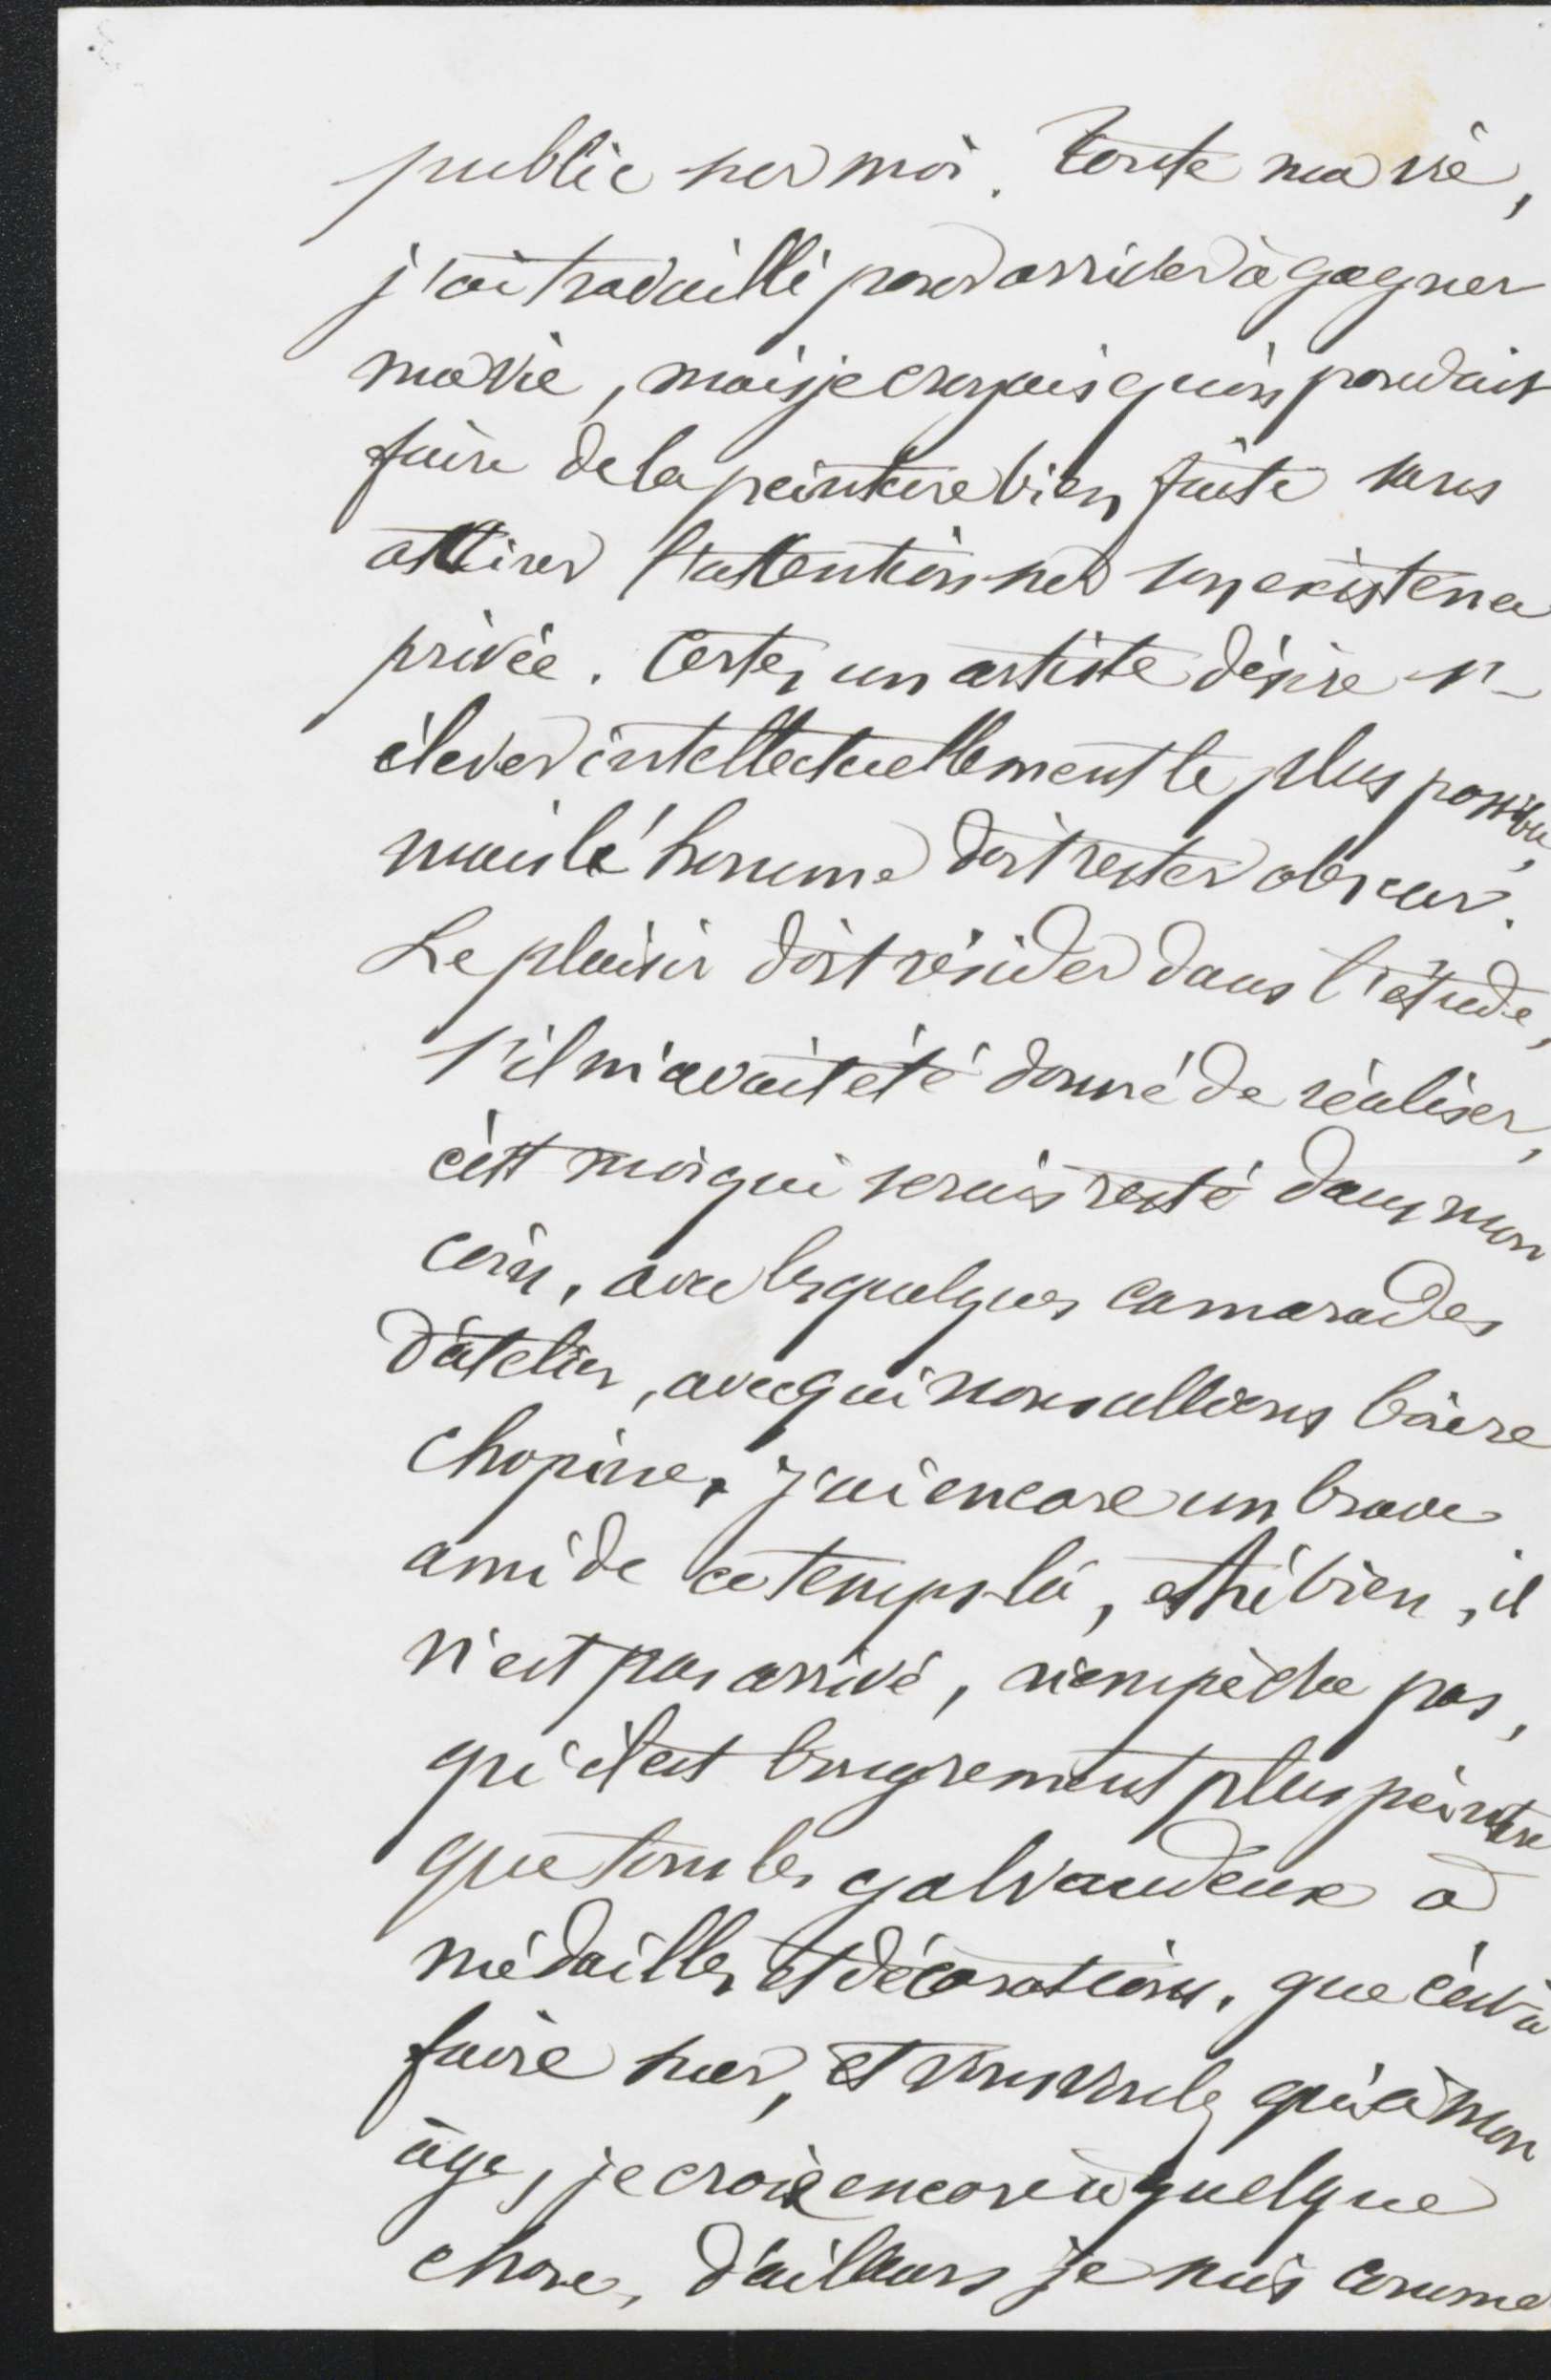 public sur moi. Toute ma vie,
j'ai travaillé pour arriver à gagner
ma vie, mais je croyais qu'on pouvait
faire de la peinture bien faite sans
attirer l'attention sur son existence
privée. Certes, un artiste désire s'
élever intellectuellement le plus possible,
mais l'homme doit rester obscur.
Le plaisir doit résider dans l'étude,
s'il m'avait été donné de réaliser,
c'est moi qui serais resté dans mon
coin, avec les quelques camarades
d'atelier, avec qui nous allions boire
chopine, j'ai encore un brave
ami de ce temps-là, et hé bien, il
n'est pas arrivé, n'empêche pas,
qu'il est bougrement plus peintre
que tous les galvaudeux à
médailles et décorations, que c'est à
faire suer, et vous voulez qu'à mon
âge, je croie encore à quelque
chose, d'ailleurs je suis comme